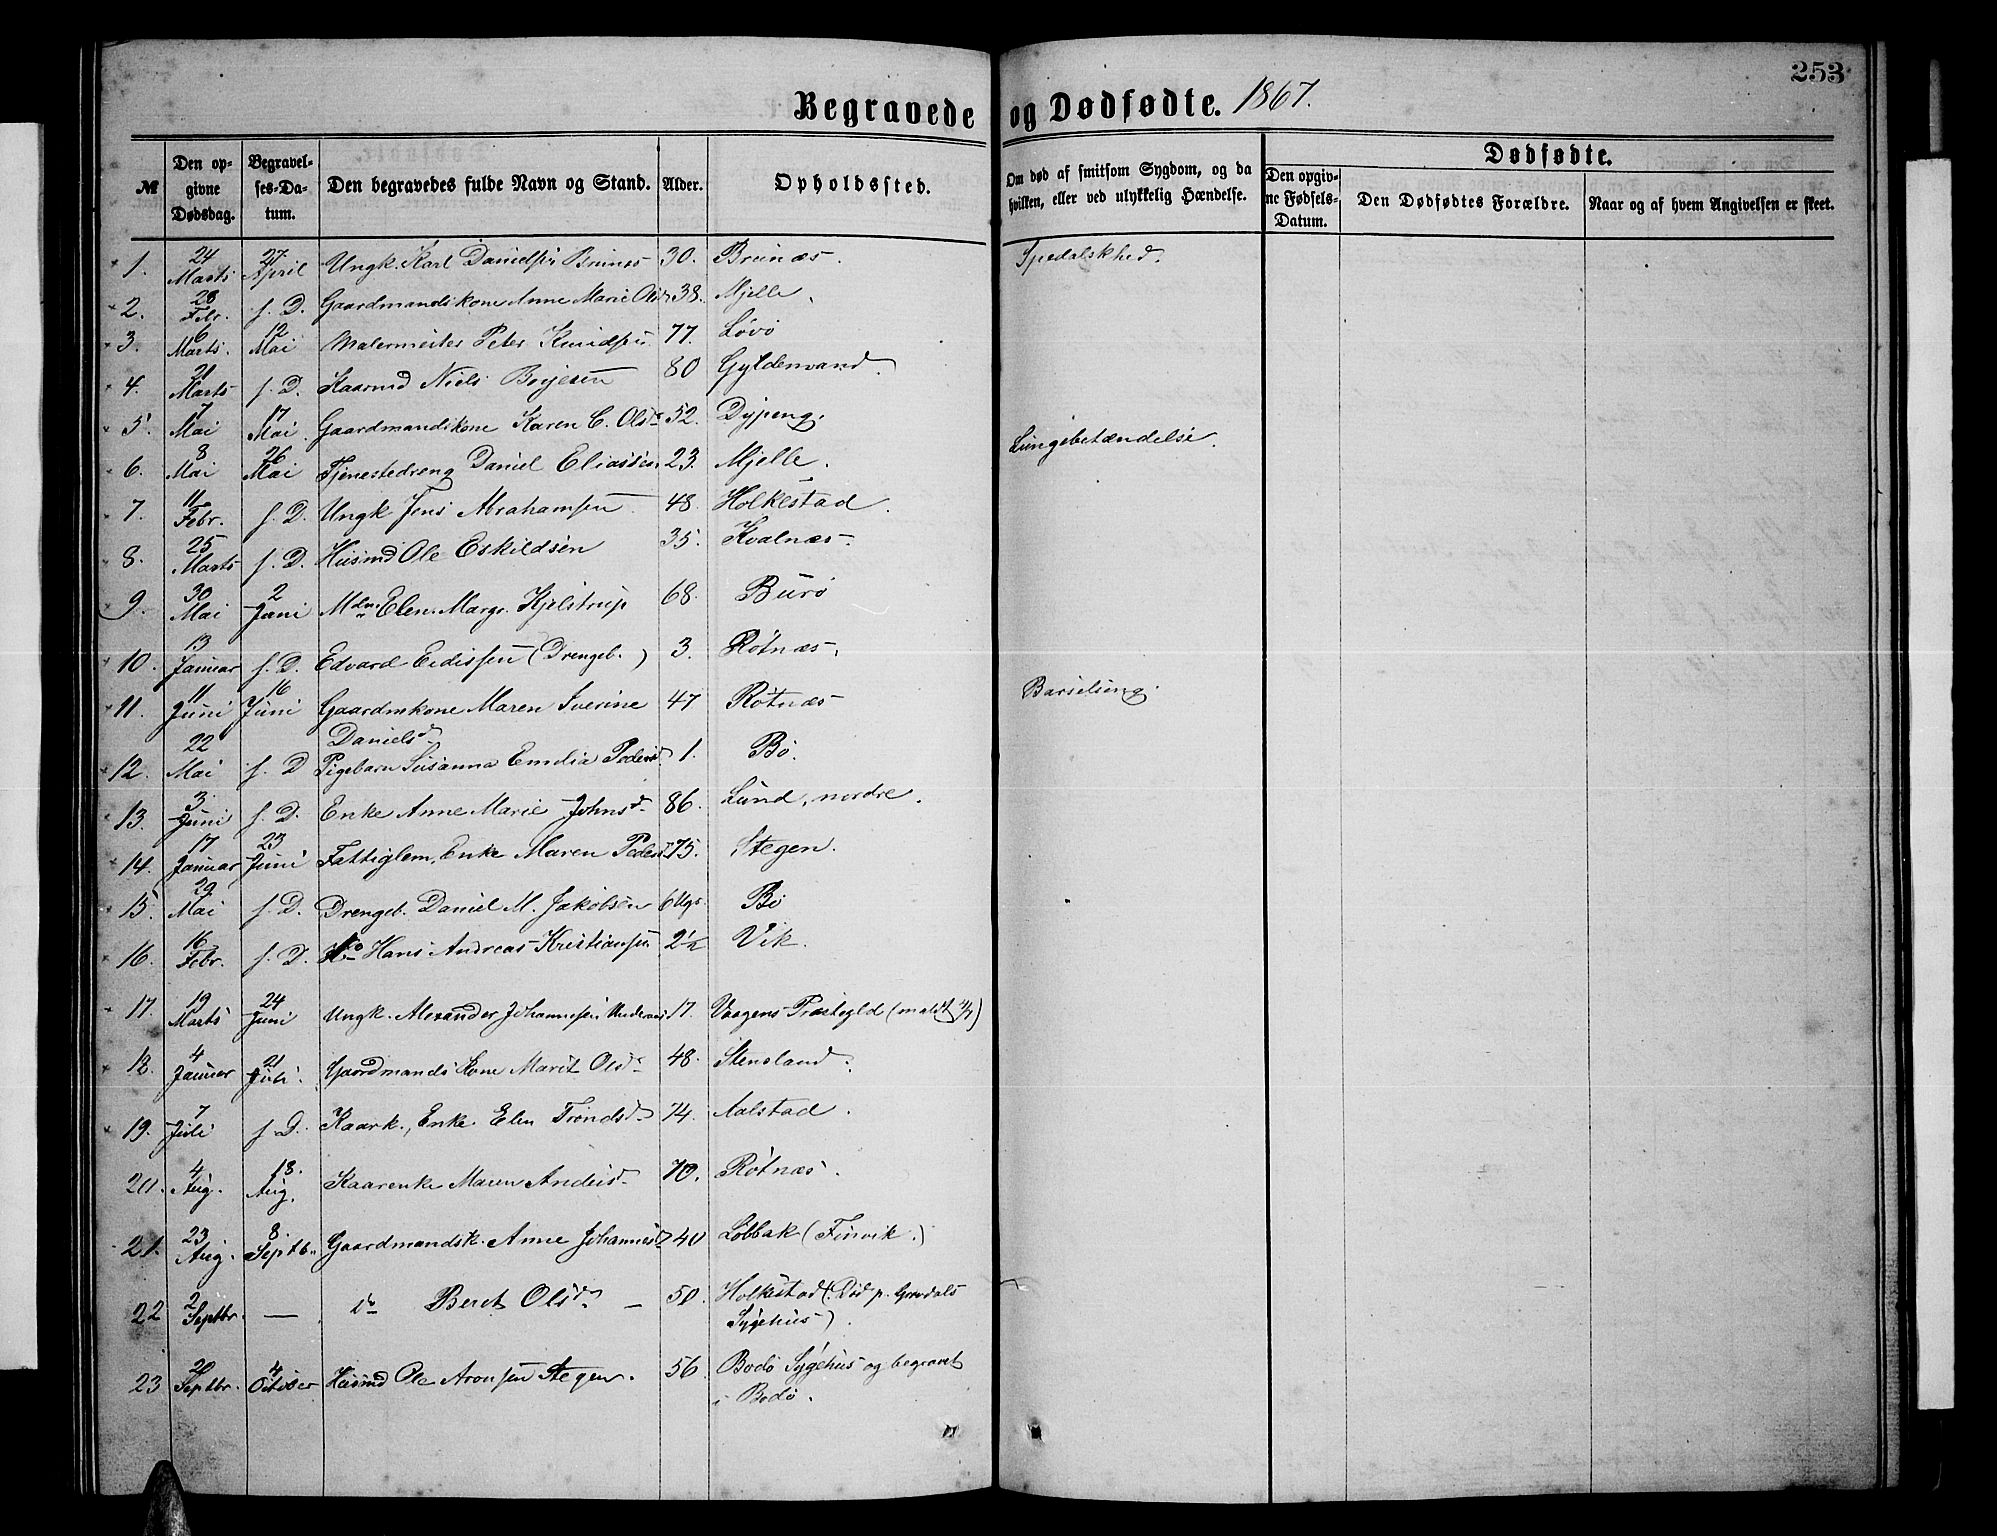 253
Begravede og Dødfødte. 1867.
№ Den opgivne Dødsdag. Begravelses-Datum. Den begravedes fulde Navn og Stand. Alder. Opholdssted. Om død af smitsom Sygdom, og da hvilken, eller ved ulykkelig Hændelse. Dødfødte. Den opgivne Fødsels-Datum. Den Dødfødtes Forældre. Naar og af hvem Angivelsen er skeet.
1. 24 Marts 27 April Ungk. Karl Danielsen Brunæs 30. Brunæs. Spedalskhed.
2. 28 Febr. s. D. Gaardmandskone Anne Marie Olsd 38. Mjelle.
3. 6 Marts. 12 Mai Malermester Peter Knudsen 77. Løvø
4. 21 Marts s. D. Kaarmd Niels Børjesen 80 Gyldenvand.
5. 7 Mai 17 Mai. Gaardmandskone Karen C. Olsd 52. Dypeng. Lungebetændelse.
6. 8 Mai 26 Mai Tjenestedreng Daniel Eliassen 23. Mjelle.
7. 11 Febr. s. D. Ungk Jens Abrahamsen 48. Holkestad.
8. 25 Marts s. D. Husmd Ole Eskildsen 35. Kvalnæs.
9. 30 Mai 2 Juni Mdm Elen Margr. Kjelstrup 68. Burø
10. 13 Januar s. D. Edvard Edissen (Drengeb.) 3. Røtnæs.
11. 11 Juni 16 Juni Gaardmkone Maren Sverine 47 Røtnæs Barselseng.
Danielsd
12. 22 Mai s. D Pigebarn Susanna Emilia Pedersd 1. Bø.
13. 3 Juni s. D. Enke Anne Marie Johnsd 86. Lund, nordre.
14. 17 Januar 23 Juni Fattiglem, Enke Maren Pedersd 75. Stegen.
15. 29 Mai s. D. Drengeb. Daniel M. Jakobsen 6 Ugr. Bø
16. 16 Febr. s. D. do Hans Andreas Kristiansen 2½ Vik.
17. 19 Marts 24 Juni Ungk. Alexander Johannesen 17. Vaagens Præstegld (meldt)
18. 4 Januar 21 Juli. Gaardmands Kone Marit Olsd 48. Stensland.
19. 7 Juli s D. Kaark., Enke Elen Trondsd 74. Aalstad.
20. 4 Aug. 18. Aug. Kaarenke Maren Andersd 70. Røtnæs.
21. 23 Aug. 8. Septb. Gaardmandsk. Anne Johannesd 40 Løbbak (Finvik.)
22 2 Septbr. — do Beret Olsd — 50. Holkestad (Død p. Grøndals
Sygehus).
23 Septbr. 4 October Husmd Ole Aronsen Stegen. 56. Bodø Sygehus og begravet
i Bodø.